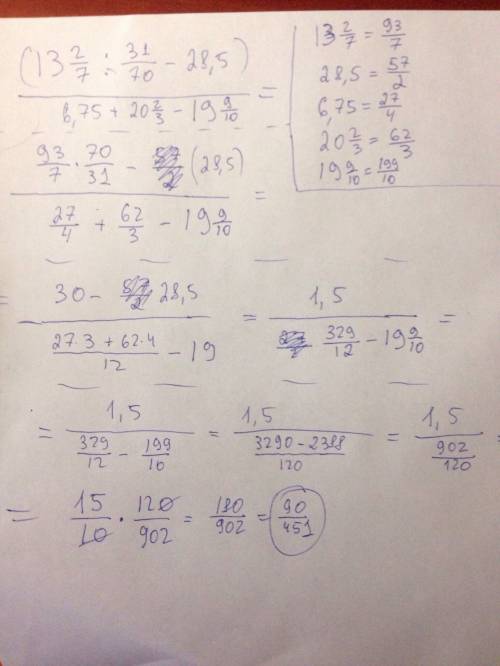 (13 2/7 ÷ 31/70 - 28,5) / (6,75 + 20 2/3 - 19 9/10) =
13 2/7 = 93/7
28,5 = 57/2
6,75 = 27/4
20 2/3 = 62/3
19 9/10 = 199/10
(93/7 · 70/31 - (28,5)) / (27/4 + 62/3 - 19 9/10) =
= (30 - 28,5) / ((27·3 + 62·4)/12 - 19) = 1,5 / (329/12 - 19 9/10) =
= 1,5 / (329/12 - 199/10) = 1,5 / ((3290 - 2388)/120) = 1,5 / (902/120) =
= 15/10 · 120/902 = 180/902 = 90/451